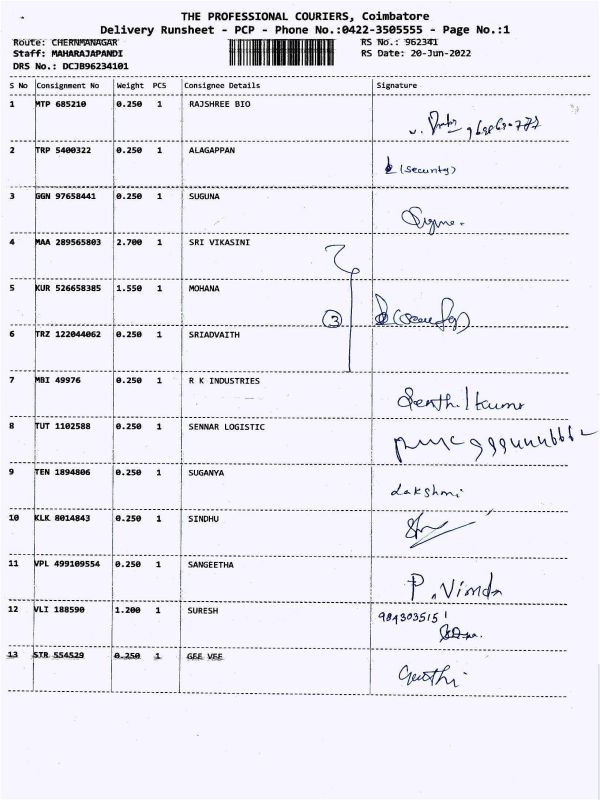 THE PROFESSIONAL COURIERS, Coimbatore
Delivery Runsheet - PCP - Phone No.:0422-3505555 - Page No.:1
Route: CHERNMANAGAR RS No.: 962341
Staff: MAHARAJAPANDI RS Date: 20-Jun-2022
DRS No.: DCJB96234101
S No Consignment No Weight PCS Consignee Details Signature
1 MTP 685210 0.250 1 RAJSHREE BIO
2 TRP 5400322 0.250 1 ALAGAPPAN (Security)
3 GGN 97658441 0.250 1 SUGUNA
4 MAA 289565803 2.700 1 SRI VIKASINI
5 KUR 526658385 1.550 1 MOHANA
3
6 TRZ 122044062 0.250 1 SRIADVAITH
7 MBI 49976 0.250 1 R K INDUSTRIES
8 TUT 1102588 0.250 1 SENNAR LOGISTIC
9 TEN 1894806 0.250 1 SUGANYA Lakshmi
10 KLK 8014843 0.250 1 SINDHU
11 VPL 499109554 0.250 1 SANGEETHA
12 VLI 188590 1.200 1 SURESH
13 STR 554529 0.250 1 GEE VEE